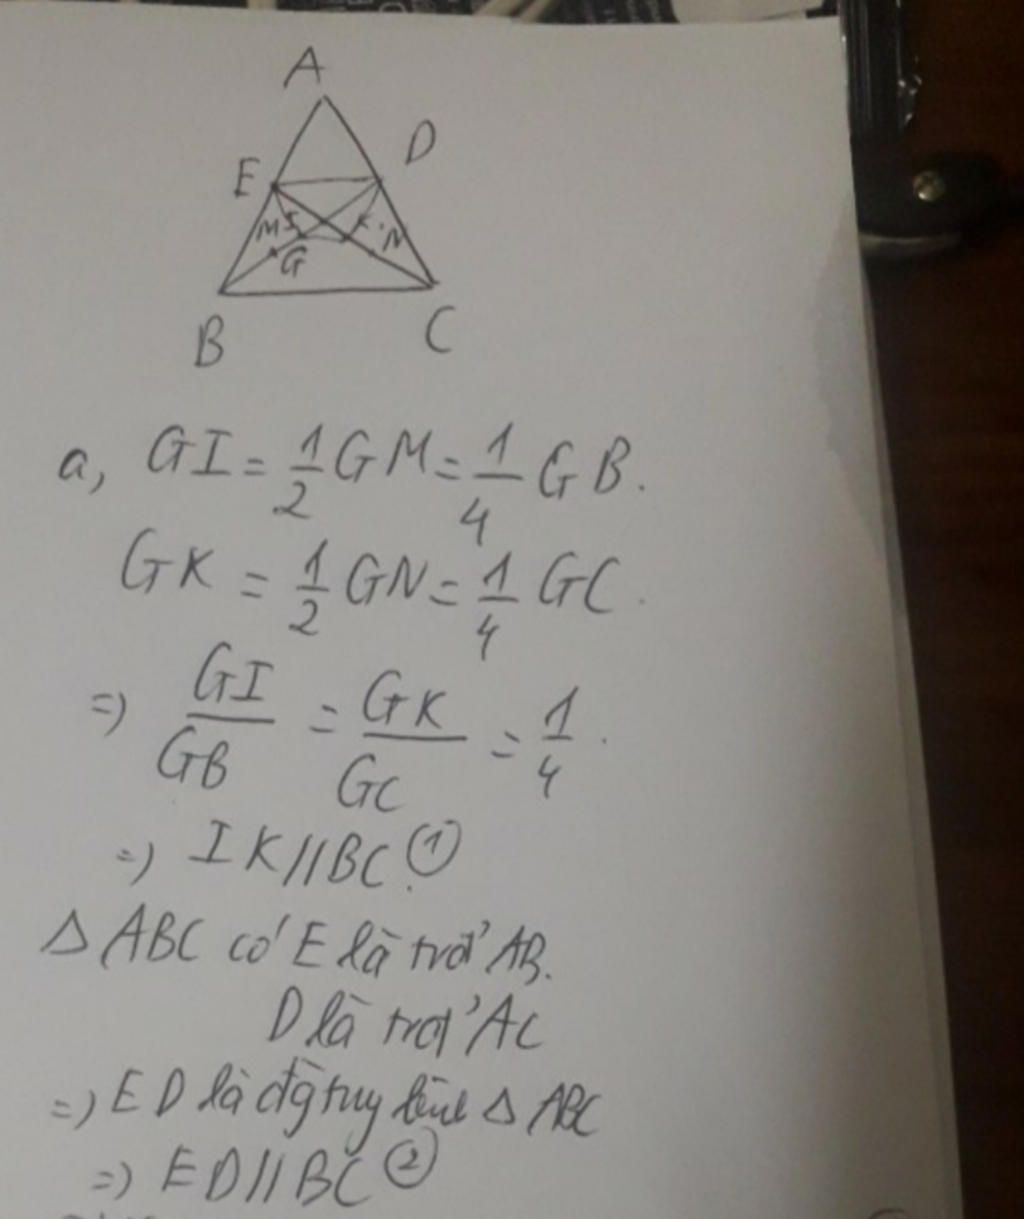 A
D
E
M I K N
G
B C
a, GI = 1/2 GM = 1/4 GB.
GK = 1/2 GN = 1/4 GC.
=) GI/GB = GK/GC = 1/4.
=) IK // BC ①
Δ ABC có E là trđ' AB.
D là trđ' AC
=) ED là đg Δ ABC
=) ED // BC ②